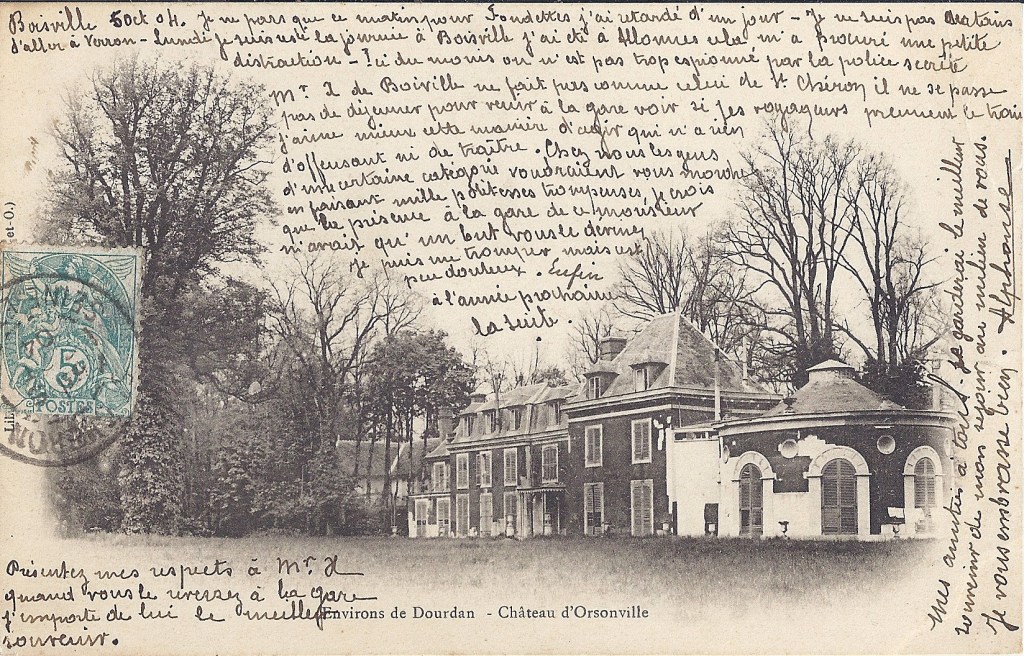 Boisville 5 Oct 04. Je ne pars que ce matin pour Fondettes j'ai retardé d'un jour - Je ne suis pas certains
d'aller à Verron - Lundi je suis resté la journée à Boisville j'ai été à Allonnes cela m'a procuré une petite
distraction - Ici du moins on n'est pas trop espionné par la police secrète
Mr X de Boisville ne fait pas comme celui de St Chéron il ne se passe
pas de déjeuner pour venir à la gare voir si les voyageurs prennent le train
j'aime mieux cette manière d'agir qui n'a rien
d'offensant ni de traître. Chez nous les gens
d'une certaine catégorie voudraient vous mordre
en faisant mille politesses trompeuses, je crois
que la présence à la gare de ce monsieur
n'avait qu'un but vous le deviner
Je puis me tromper mais c'est
peu douteux. Enfin
à l'année prochaine
la suite.
et-O.)
Lib
5
POSTES
Présentez mes respects à Mr X
quand vous le verrez à la gare
j'emporte de lui le meilleur
souvenir.
Environs de Dourdan - Château d'Orsonville
Mes amitiés à tous. Je garderai le meilleur
souvenir de mon séjour au milieu de vous.
Je vous embrasse bien. Alphonse